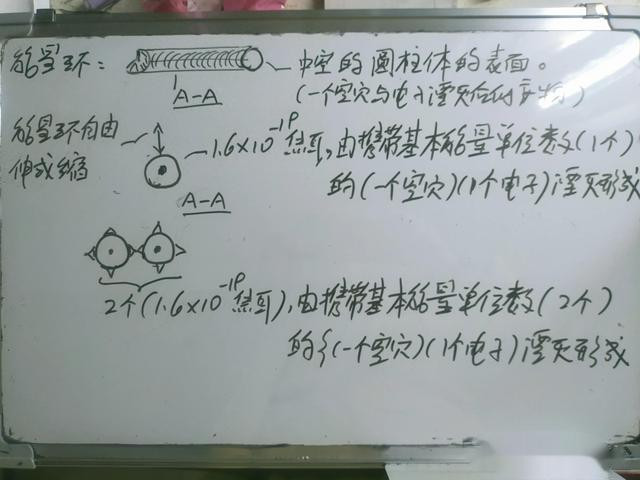 能量环：中空的圆柱体的表面。
A-A
(一个空穴与电子湮灭后的产物)
能量环自由
伸或缩
1.6×10⁻¹⁹焦耳,由携带基本能量单位数(1个)
的(一个空穴)(1个电子)湮灭形成
A-A
2个(1.6×10⁻¹⁹焦耳),由携带基本能量单位数(2个)
的{(一个空穴)(1个电子)湮灭形成